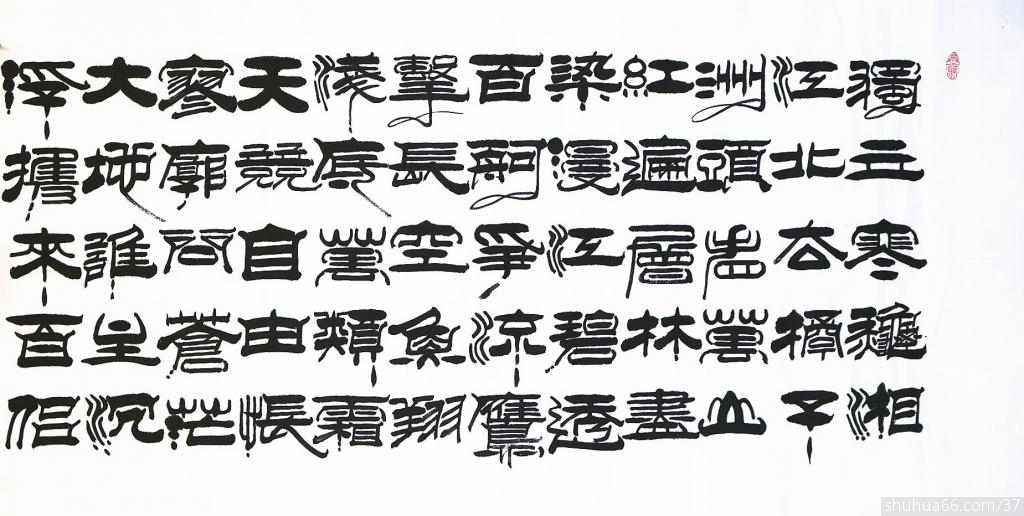 獨立寒龝湘
江北去橘子
洲頭看萬山
紅遍層林盡
染漫江碧透
百舸爭流鷹
擊長空魚翔
淺底萬類霜
天競自由悵
寥廓問蒼茫
大地誰主沉
浮攜來百侶
shuhua66.com/37